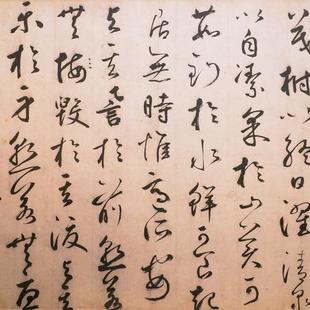 茂樹以終日濯清泉
以自潔采於山美可
茹釣於水鮮可食起
居無時惟適所安
與其譽於前孰若
無悔毀於其後與其
樂於身孰若無憂